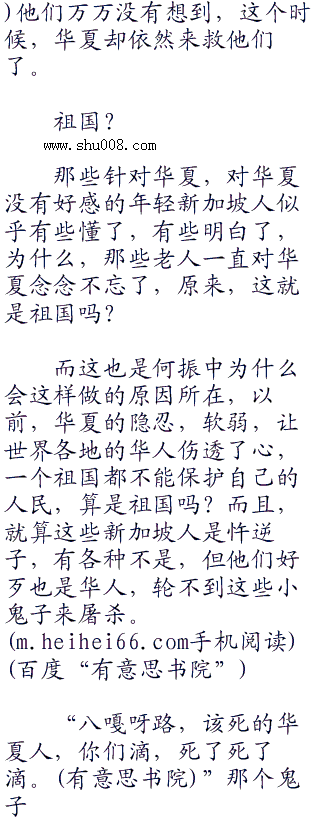 )他们万万没有想到，这个时
候，华夏却依然来救他们
了。
祖国？
www.shu008.com
那些针对华夏，对华夏
没有好感的年轻新加坡人似
乎有些懂了，有些明白了，
为什么，那些老人一直对华
夏念念不忘了，原来，这就
是祖国吗？
而这也是何振中为什么
会这样做的原因所在，以
前，华夏的隐忍，软弱，让
世界各地的华人伤透了心，
一个祖国都不能保护自己的
人民，算是祖国吗？而且，
就算这些新加坡人是忤逆
子，有各种不是，但他们好
歹也是华人，轮不到这些小
鬼子来屠杀。
(m.heihei66.com手机阅读)
(百度“有意思书院”)
“八嘎呀路，该死的华
夏人，你们滴，死了死了
滴。(有意思书院)”那个鬼
子